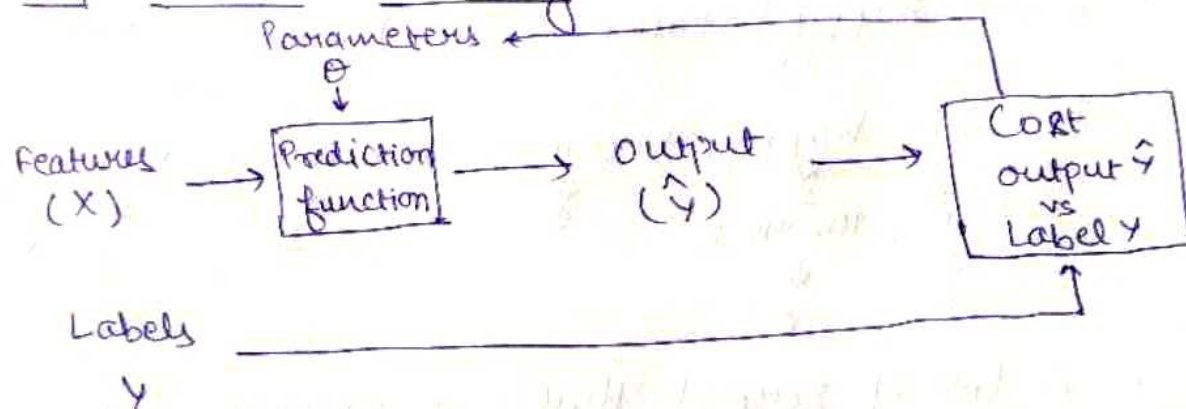 Parameters
θ
Features
(X)
Prediction
function
Output
(Ŷ)
Cost
output Ŷ
vs
Label Y
Labels
Y